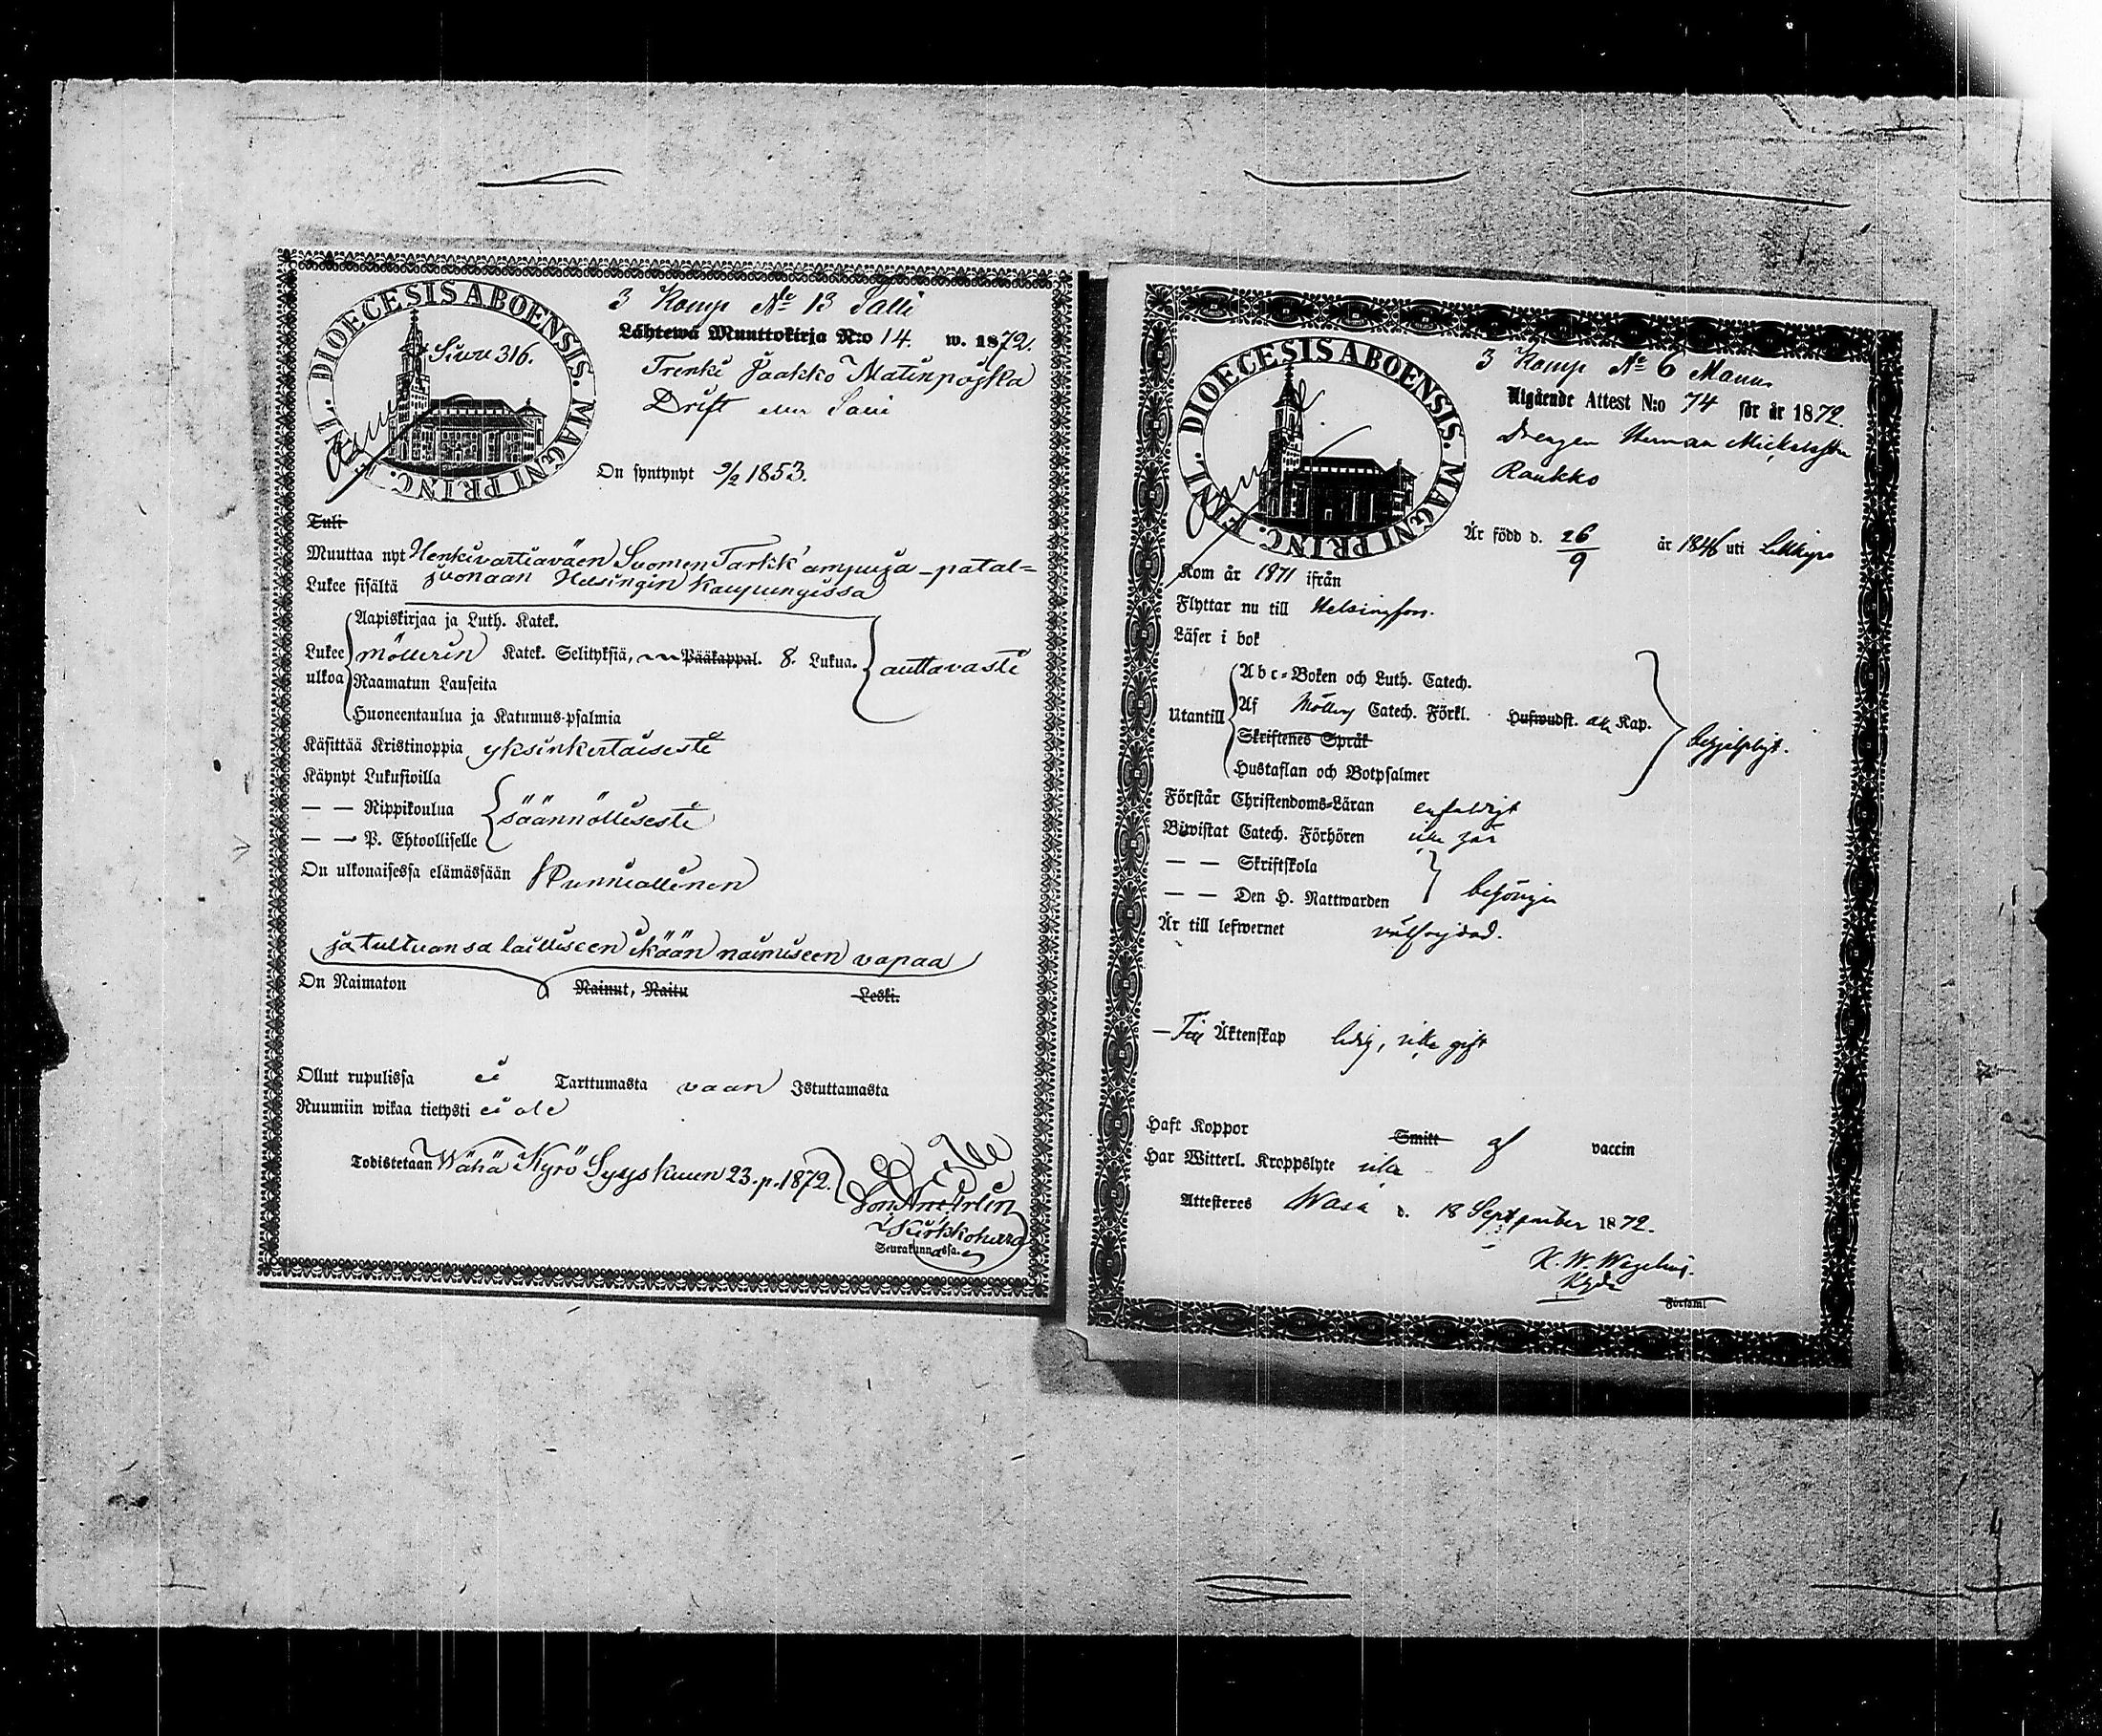 3 Komp No 13 Salli
DIOECESIS ABOENSIS. MAGNI PRINC. FINL.
Siwu 316.
Lähtewä Muuttokirja N:o 14. w. 1872.
Trenki Jaakko Matinpojka
Drift eller Savi
On syntynyt 9/2 1853.
Tuli
Muuttaa nyt Henkivartiaväen Suomen Tarkk'ampuja-patal=
juonaan Helsingin kaupungissa
Lukee sisältä
Aapiskirjaa ja Luth. Katek.
Lukee ulkoa
Möllerin Katek. Selityksiä, Pääkappal. 8. Lukua. auttavasti
Raamatun Lauseita
Huoneentaulua ja Katumus-psalmia
Käsittää Kristinoppia yksinkertaisesti
Käynyt Lukusioilla
— — Rippikoulua säännöllisesti
— — P. Ehtoolliselle
On ulkonaisessa elämässään Kunniallinen
ja tultuansa lailliseen ikään naimiseen vapaa
On Naimaton Nainut, Naitu Leski.
Ollut rupulissa ei Tarttumasta vaan Istuttamasta
Ruumiin wikaa tietysti ei ole
Todistetaan Wähä Kyrö Syyskuun 23. p. 1872.
Kirkkoherra
Seurakunnassa.
3 Komp No 6 Manns
DIOECESIS ABOENSIS. MAGNI PRINC. FINL.
Utgående Attest N:o 74 för år 1872.
Drengen Herman Mickelsson
Raukko
Är född d. 26/9 år 1846 uti Lillkyro
Kom år 1871 ifrån
Flyttar nu till Helsingfors.
Läser i bok
Abc-Boken och Luth. Catech.
Utantill
Af Möllers Catech. Förkl. Hufwudst. alla Kap. behjelpligt.
Skriftenes Språk
Hustaflan och Botpsalmer
Förstår Christendoms-Läran enfaldigt
Biwistat Catech. Förhören icke här
— — Skriftskola
— — Den H. Nattwarden behörigen
Är till lefwernet välfrejdad.
— Till Äktenskap ledig, icke gift
Haft Koppor Smitt af vaccin
Har Witterl. Kroppslyte icke
Attesteres Wasa d. 18 September 1872.
K. W. Wegelius.
Kyde
Församl